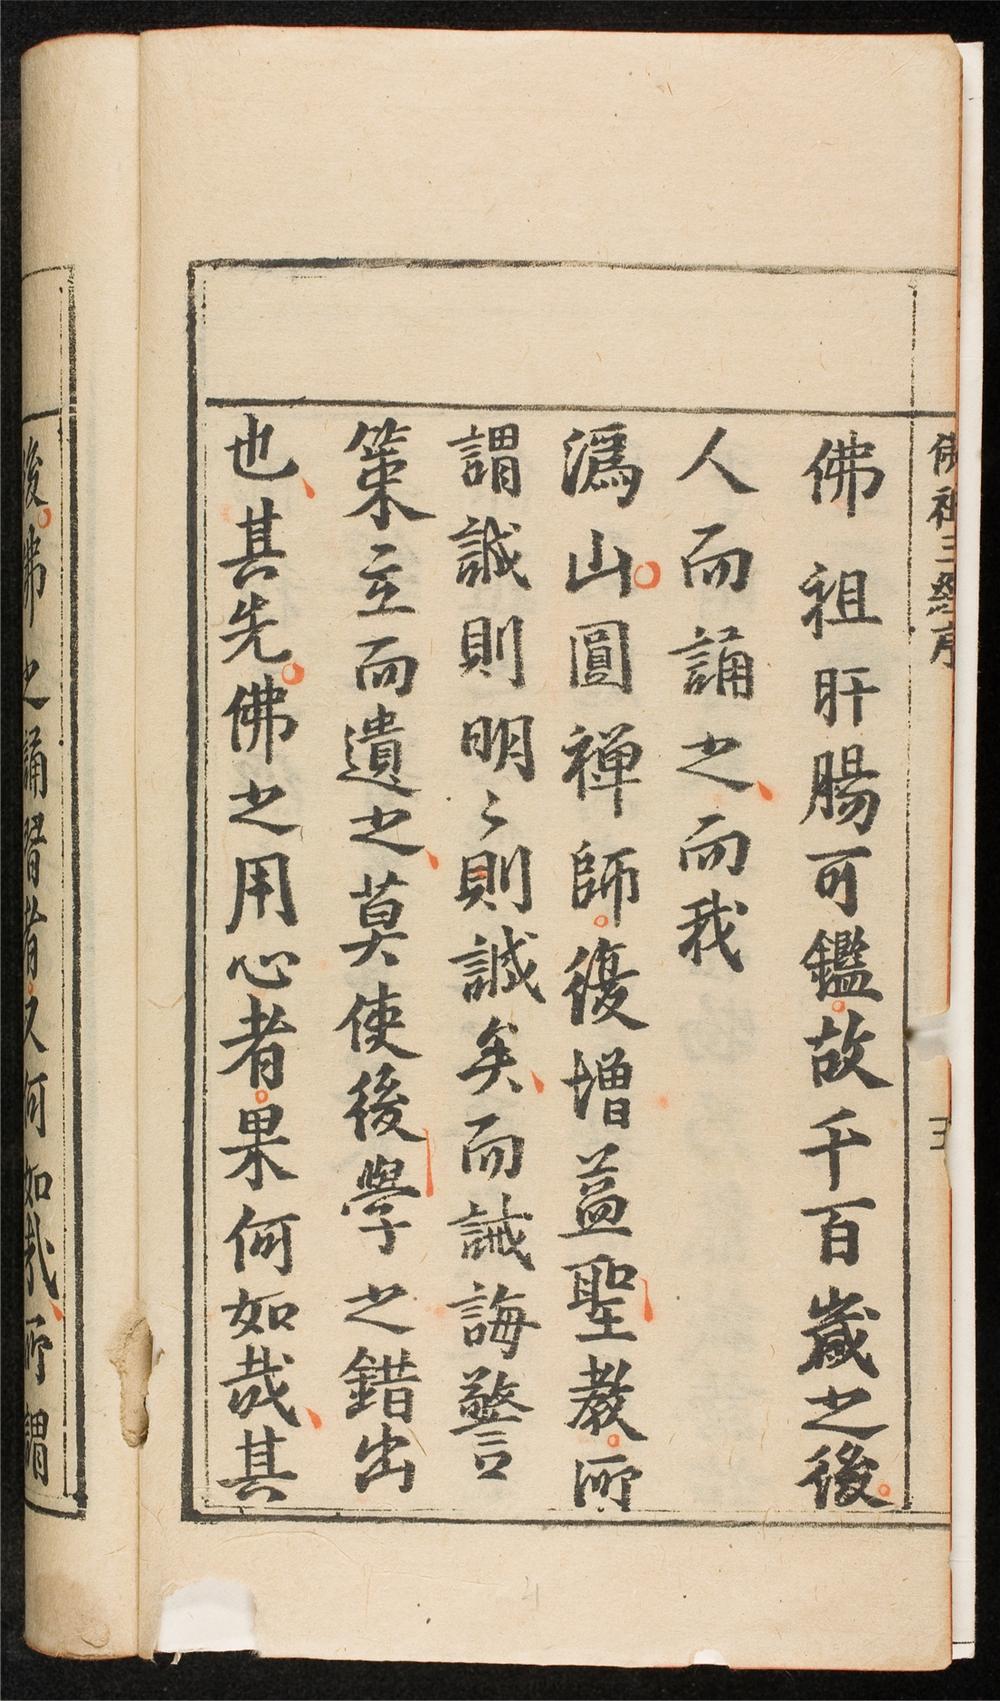 佛祖三經序
三
佛祖肝腸可鑑故千百歲之後
人而誦之而我
潙山圓禪師復增益聖教所
謂誠則明〻則誠矣而誡誨警
策立而遺之莫使後學之錯出
也其先佛之用心者果何如哉其
後佛之誦習者又何如哉所謂